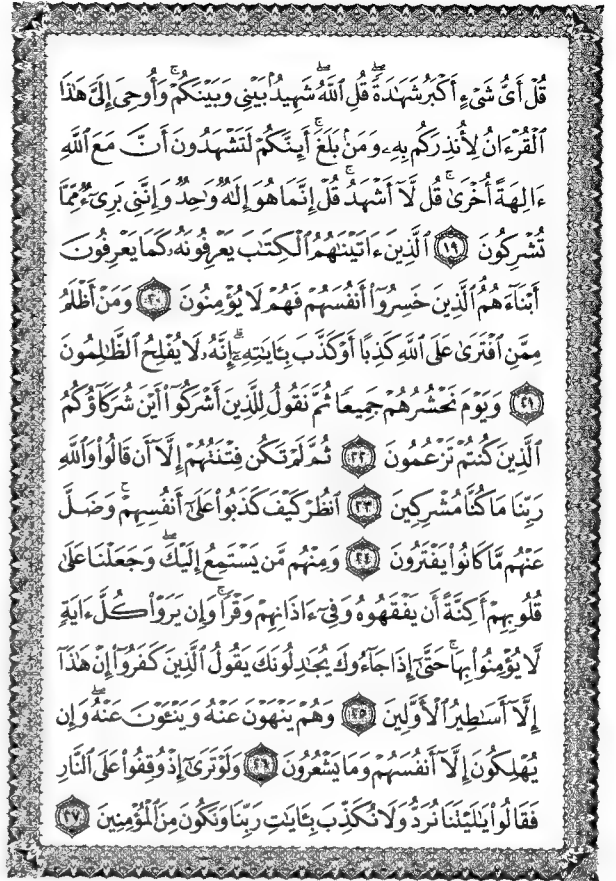 قُلۡ أَىُّ شَىۡءٍ أَكۡبَرُ شَهَٰدَةٗۖ قُلِ ٱللَّهُۖ شَهِيدُۢ بَيۡنِي وَبَيۡنَكُمۡۚ وَأُوحِيَ إِلَىَّ هَٰذَا
ٱلۡقُرۡءَانُ لِأُنذِرَكُم بِهِۦ وَمَنۢ بَلَغَۚ أَئِنَّكُمۡ لَتَشۡهَدُونَ أَنَّ مَعَ ٱللَّهِ
ءَالِهَةً أُخۡرَىٰۚ قُل لَّآ أَشۡهَدُۚ قُلۡ إِنَّمَا هُوَ إِلَٰهٞ وَٰحِدٞ وَإِنَّنِي بَرِيٓءٞ مِّمَّا
تُشۡرِكُونَ ١٩ ٱلَّذِينَ ءَاتَيۡنَٰهُمُ ٱلۡكِتَٰبَ يَعۡرِفُونَهُۥ كَمَا يَعۡرِفُونَ
أَبۡنَآءَهُمُۘ ٱلَّذِينَ خَسِرُوٓاْ أَنفُسَهُمۡ فَهُمۡ لَا يُؤۡمِنُونَ ٢٠ وَمَنۡ أَظۡلَمُ
مِمَّنِ ٱفۡتَرَىٰ عَلَى ٱللَّهِ كَذِبًا أَوۡ كَذَّبَ بِـَٔايَٰتِهِۦٓۗ إِنَّهُۥ لَا يُفۡلِحُ ٱلظَّٰلِمُونَ
٢١ وَيَوۡمَ نَحۡشُرُهُمۡ جَمِيعٗا ثُمَّ نَقُولُ لِلَّذِينَ أَشۡرَكُوٓاْ أَيۡنَ شُرَكَآؤُكُمُ
ٱلَّذِينَ كُنتُمۡ تَزۡعُمُونَ ٢٢ ثُمَّ لَمۡ تَكُن فِتۡنَتُهُمۡ إِلَّآ أَن قَالُواْ وَٱللَّهِ
رَبِّنَا مَا كُنَّا مُشۡرِكِينَ ٢٣ ٱنظُرۡ كَيۡفَ كَذَبُواْ عَلَىٰٓ أَنفُسِهِمۡۚ وَضَلَّ
عَنۡهُم مَّا كَانُواْ يَفۡتَرُونَ ٢٤ وَمِنۡهُم مَّن يَسۡتَمِعُ إِلَيۡكَۖ وَجَعَلۡنَا عَلَىٰ
قُلُوبِهِمۡ أَكِنَّةً أَن يَفۡقَهُوهُ وَفِيٓ ءَاذَانِهِمۡ وَقۡرٗاۚ وَإِن يَرَوۡاْ كُلَّ ءَايَةٖ
لَّا يُؤۡمِنُواْ بِهَاۚ حَتَّىٰٓ إِذَا جَآءُوكَ يُجَٰدِلُونَكَ يَقُولُ ٱلَّذِينَ كَفَرُوٓاْ إِنۡ هَٰذَآ
إِلَّآ أَسَٰطِيرُ ٱلۡأَوَّلِينَ ٢٥ وَهُمۡ يَنۡهَوۡنَ عَنۡهُ وَيَنۡـَٔوۡنَ عَنۡهُۖ وَإِن
يُهۡلِكُونَ إِلَّآ أَنفُسَهُمۡ وَمَا يَشۡعُرُونَ ٢٦ وَلَوۡ تَرَىٰٓ إِذۡ وُقِفُواْ عَلَى ٱلنَّارِ
فَقَالُواْ يَٰلَيۡتَنَا نُرَدُّ وَلَا نُكَذِّبَ بِـَٔايَٰتِ رَبِّنَا وَنَكُونَ مِنَ ٱلۡمُؤۡمِنِينَ ٢٧